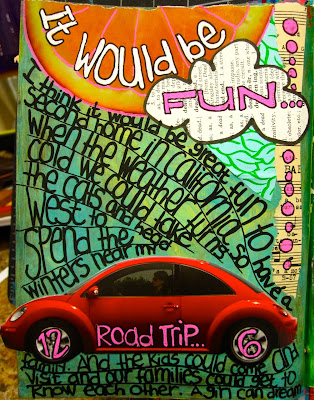 It would be
FUN...
I think it would be great fun to
second home in California so have a
when the weather turns
cold we could take
the cats and head
West to
Spend the
winters near my
Road Trip...
12
6
family. And the kids could come and
visit and our families could get to
know each other. A girl can dream